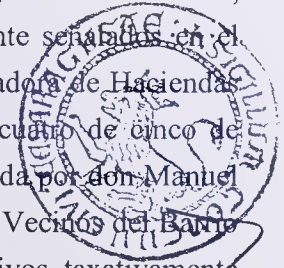 nte señalados en el
adora de Haciendas
cuatro de cinco de
da por don Manuel
Vecinos del Barrio
ivos taxativamente
SIGILLUM